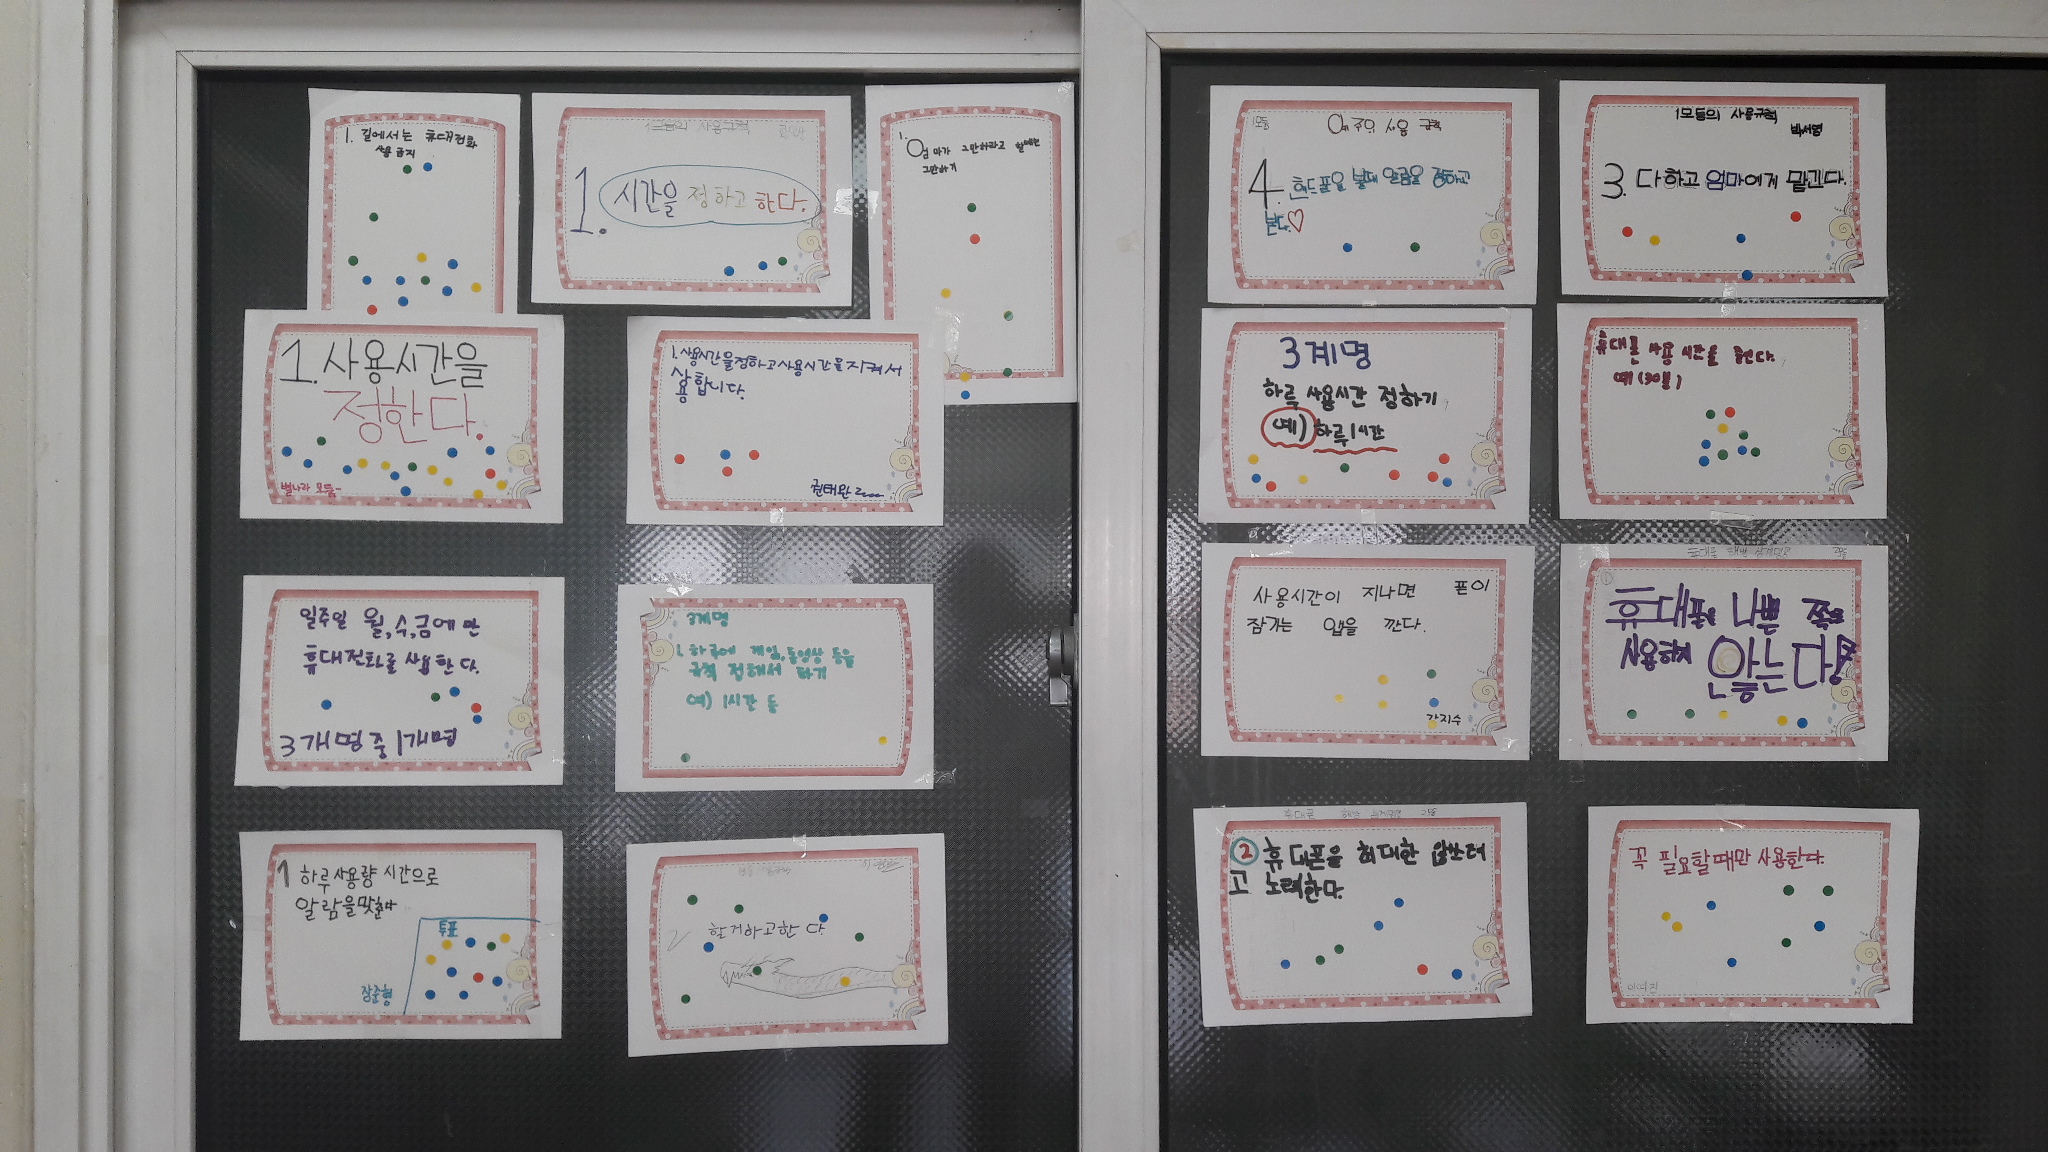 1. 길에서는 휴대전화
사용 금지
1모둠의 사용규칙
1. 시간을 정하고 한다.
1. 엄마가 그만하라고 할때는
그만하기
1. 사용시간을
정한다.
별나라 모둠-
1. 사용시간을정하고사용시간을지켜서
사용합니다.
권태완
일주일 월,수,금에만
휴대전화를 사용한다.
3개명 중 1개명
3계명
1. 하루에 게임,동영상 등을
규칙 정해서 하기
예) 1시간 등
1 하루사용량 시간으로
알람을맞춘다
투표
장준형
2 할거하고한다
1모둠 사용 규칙
4. 핸드폰을 볼때 알람을 정하고
본다.♡
1모둠의 사용규칙
박서영
3. 다하고 엄마에게 맡긴다.
3계명
하루 사용시간 정하기
예) 하루1시간
휴대폰 사용 시간을 줄인다.
예(30분)
사용시간이 지나면 폰이
잠기는 앱을 깐다.
강지수
휴대폰 2모둠
휴대폰을 나쁜 쪽으로
사용하지 안는다!
휴대폰 2모둠
② 휴대폰을 최대한 않쓰려
고 노력한다.
꼭 필요할때만 사용한다.